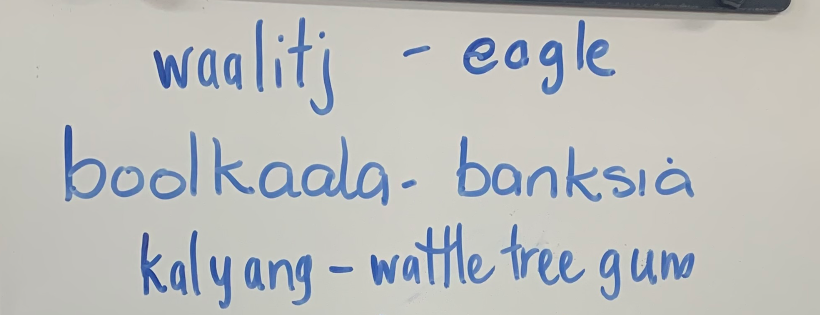 waalitj - eagle
boolkaala - banksia
kalyang - wattle tree gum